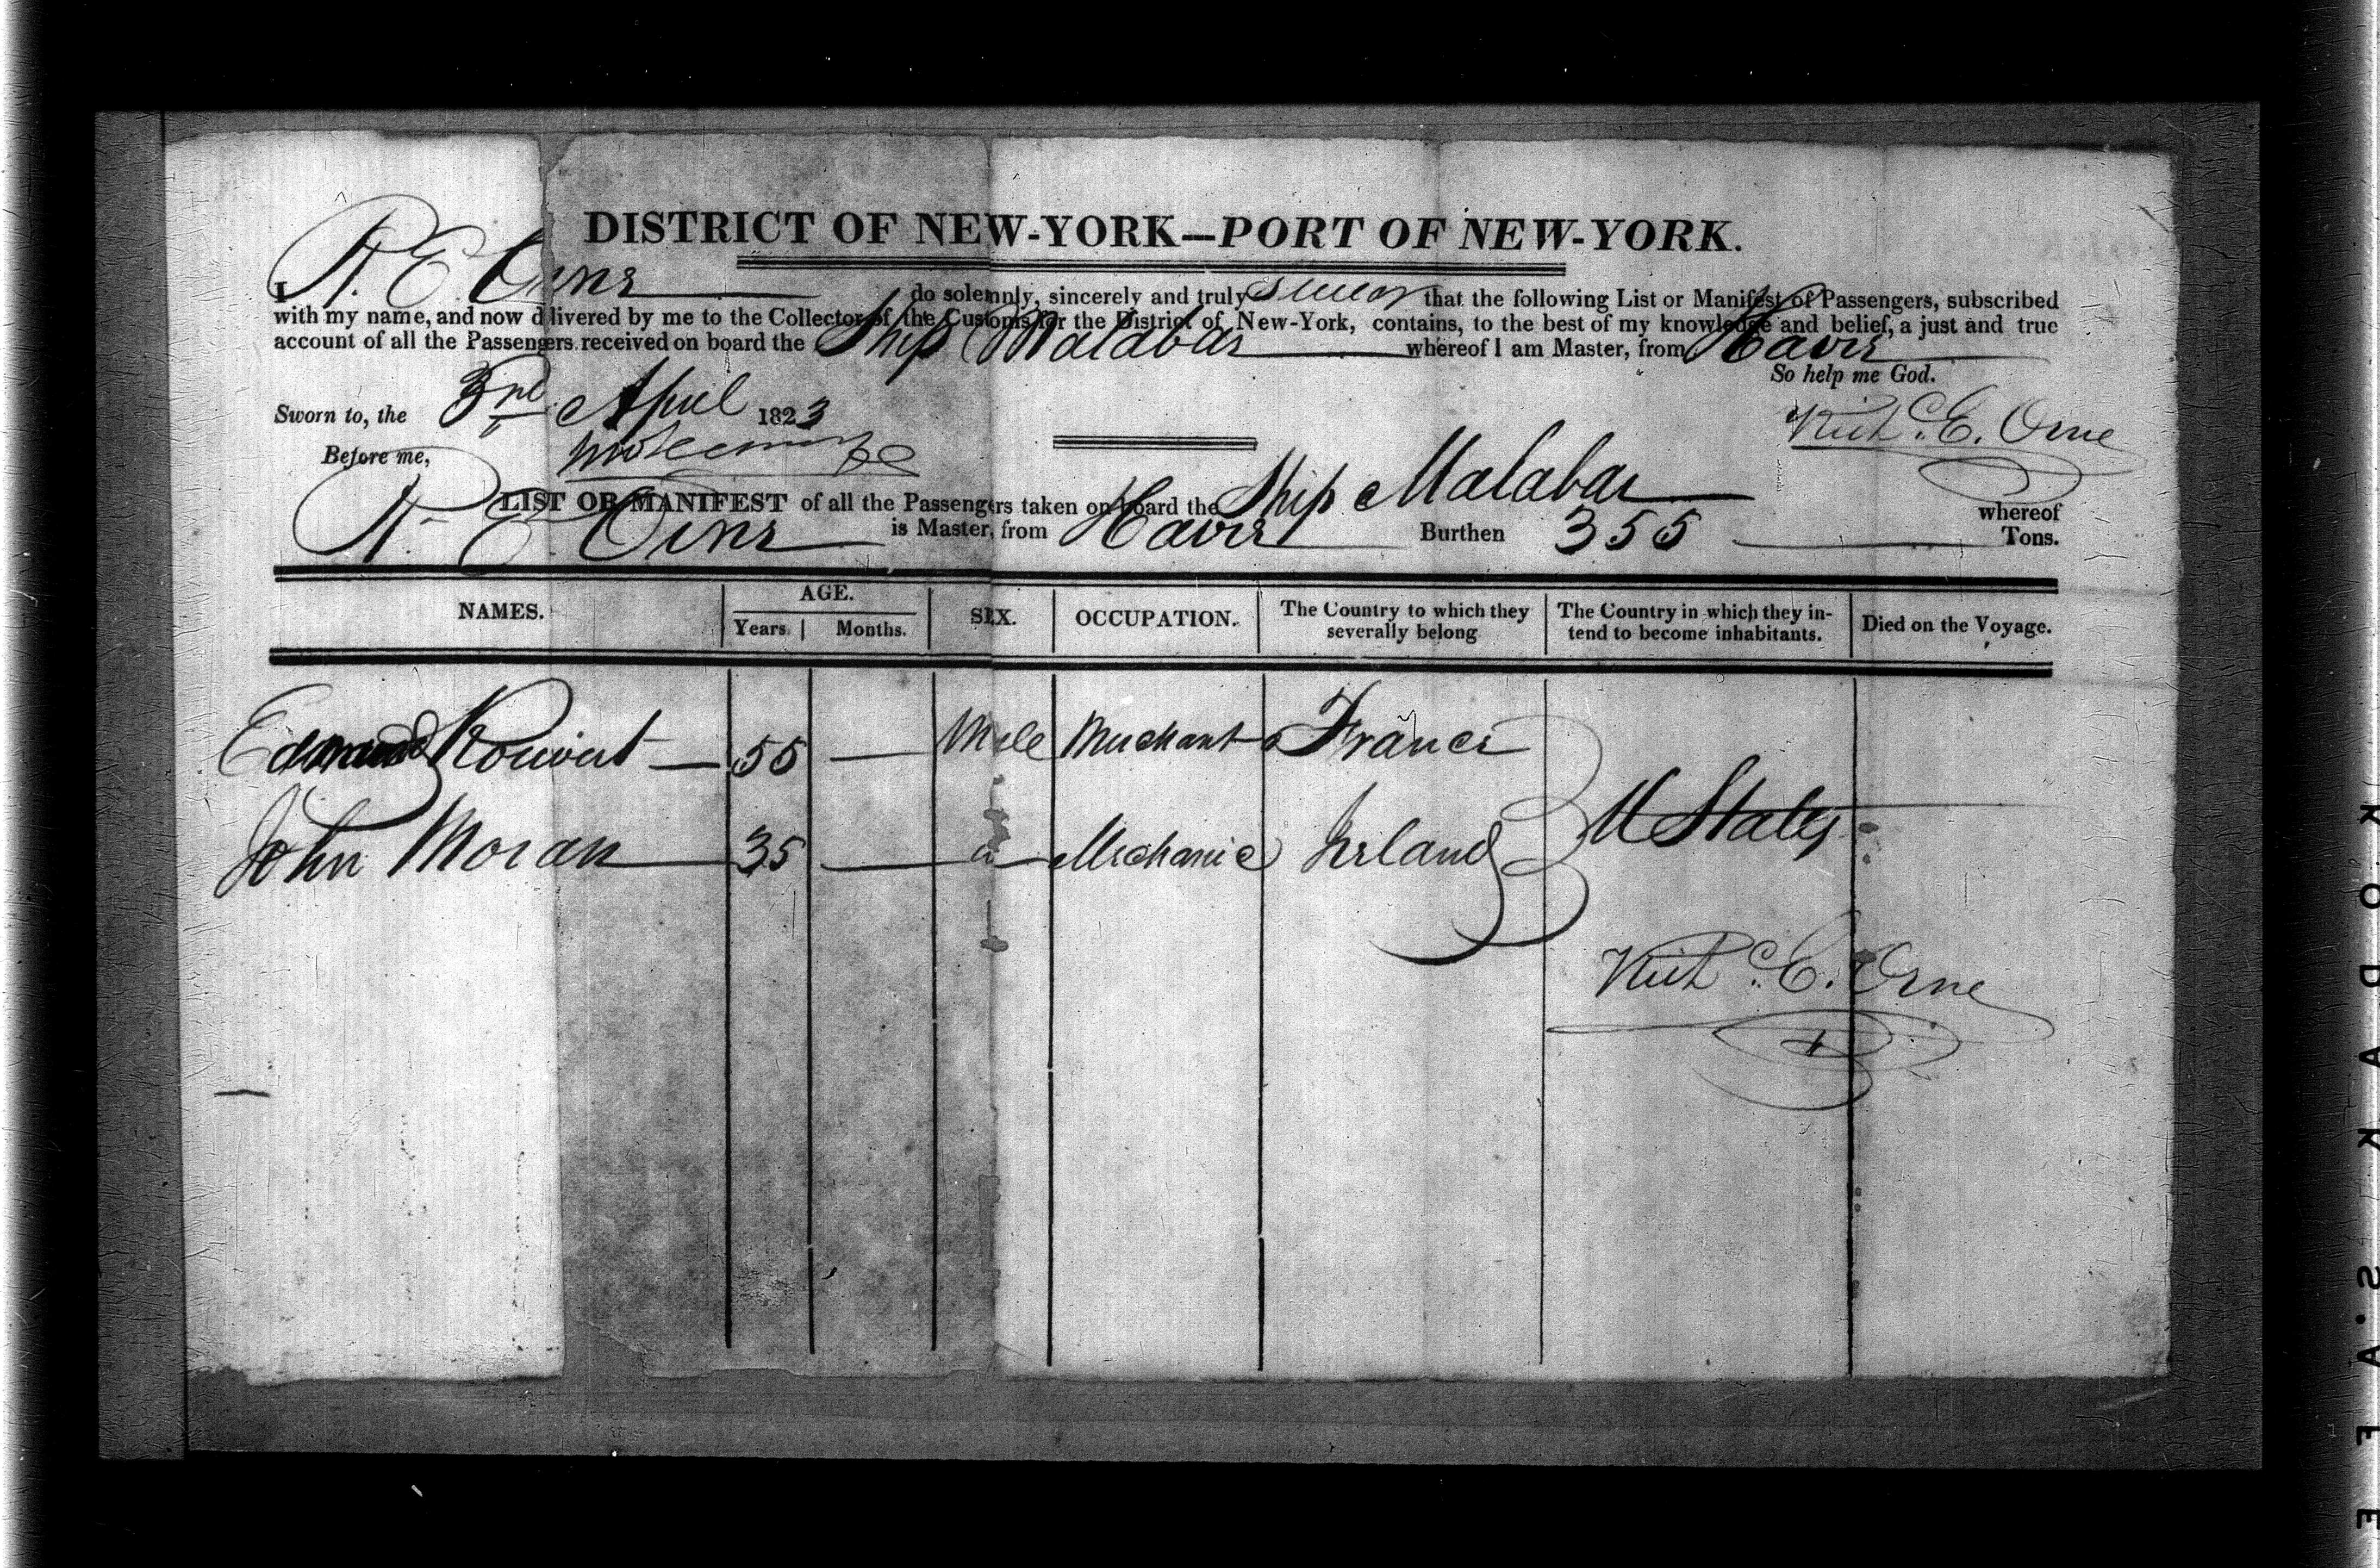 DISTRICT OF NEW-YORK—PORT OF NEW-YORK.
I R. E. Orne do solemnly, sincerely and truly swear that the following List or Manifest of Passengers, subscribed
with my name, and now delivered by me to the Collector of the Customs for the District of New-York, contains, to the best of my knowledge and belief, a just and true
account of all the Passengers received on board the Ship Malabar whereof I am Master, from Havre
So help me God.
Sworn to, the 3rd April 1823
Richd. E. Orne
Before me,
LIST OR MANIFEST of all the Passengers taken on board the Ship Malabar whereof
R. E. Orne is Master, from Havre Burthen 355 Tons.
NAMES. AGE. SEX. OCCUPATION. The Country to which they severally belong The Country in which they intend to become inhabitants. Died on the Voyage.
Years. Months.
Edmund 55 — Male Merchant France
John Moran 35 — " Mechanic Ireland U States
Richd. E. Orne
KODAK S.AFE